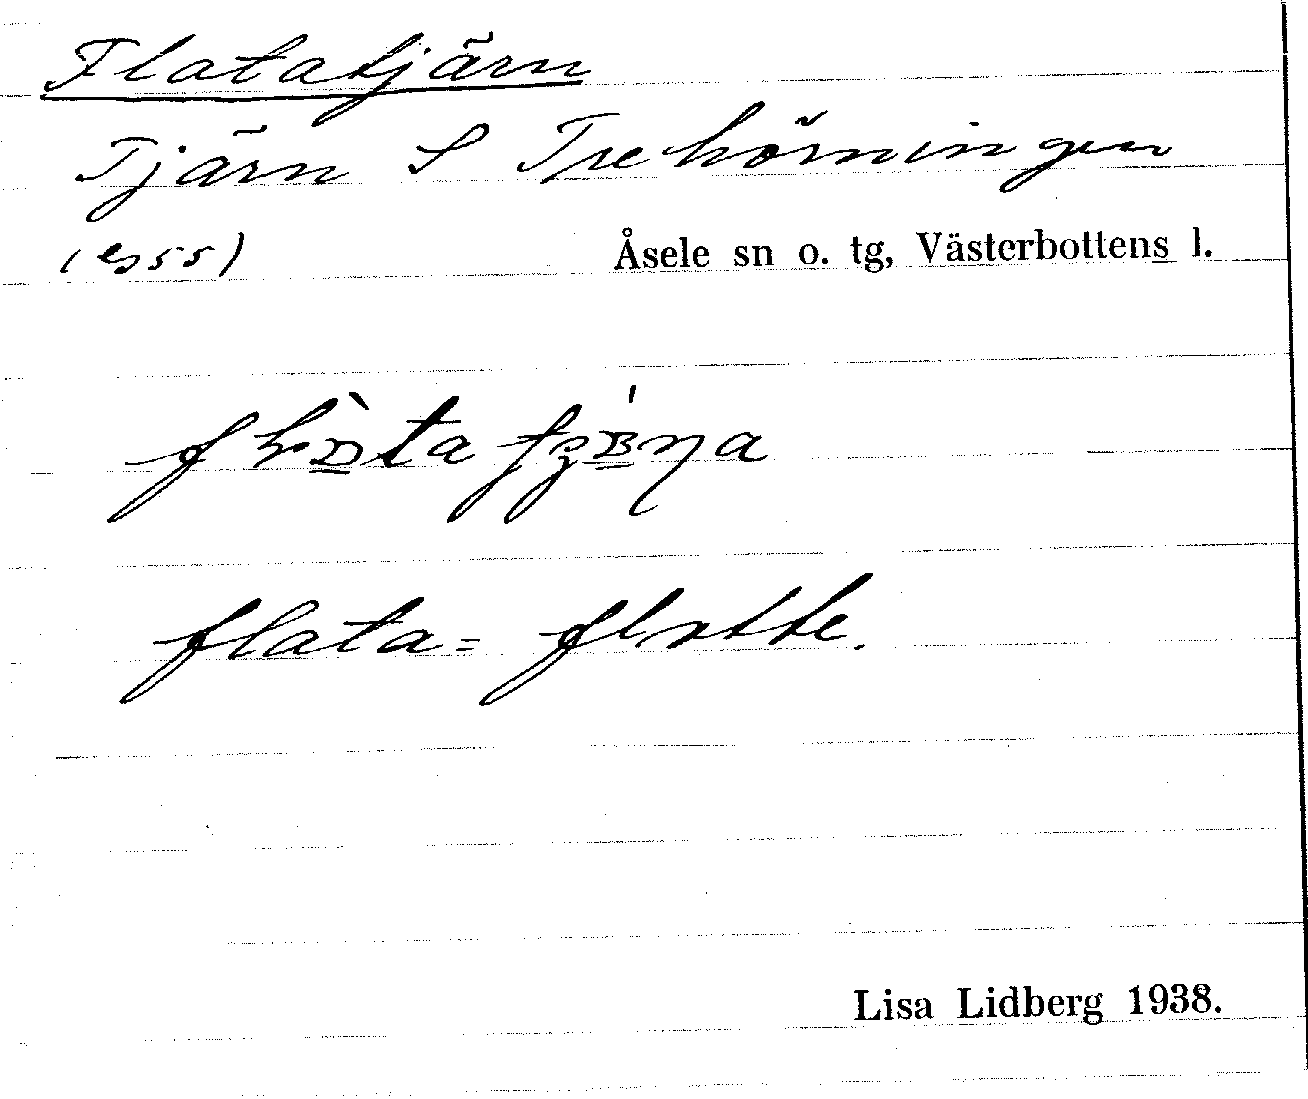 Flatatjärn
Tjärn S Trehörningen
(es 55) Åsele sn o. tg, Västerbottens l.
flata = flatte.
Lisa Lidberg 1938.